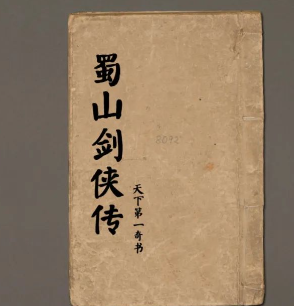 蜀山剑侠传
天下第一奇书